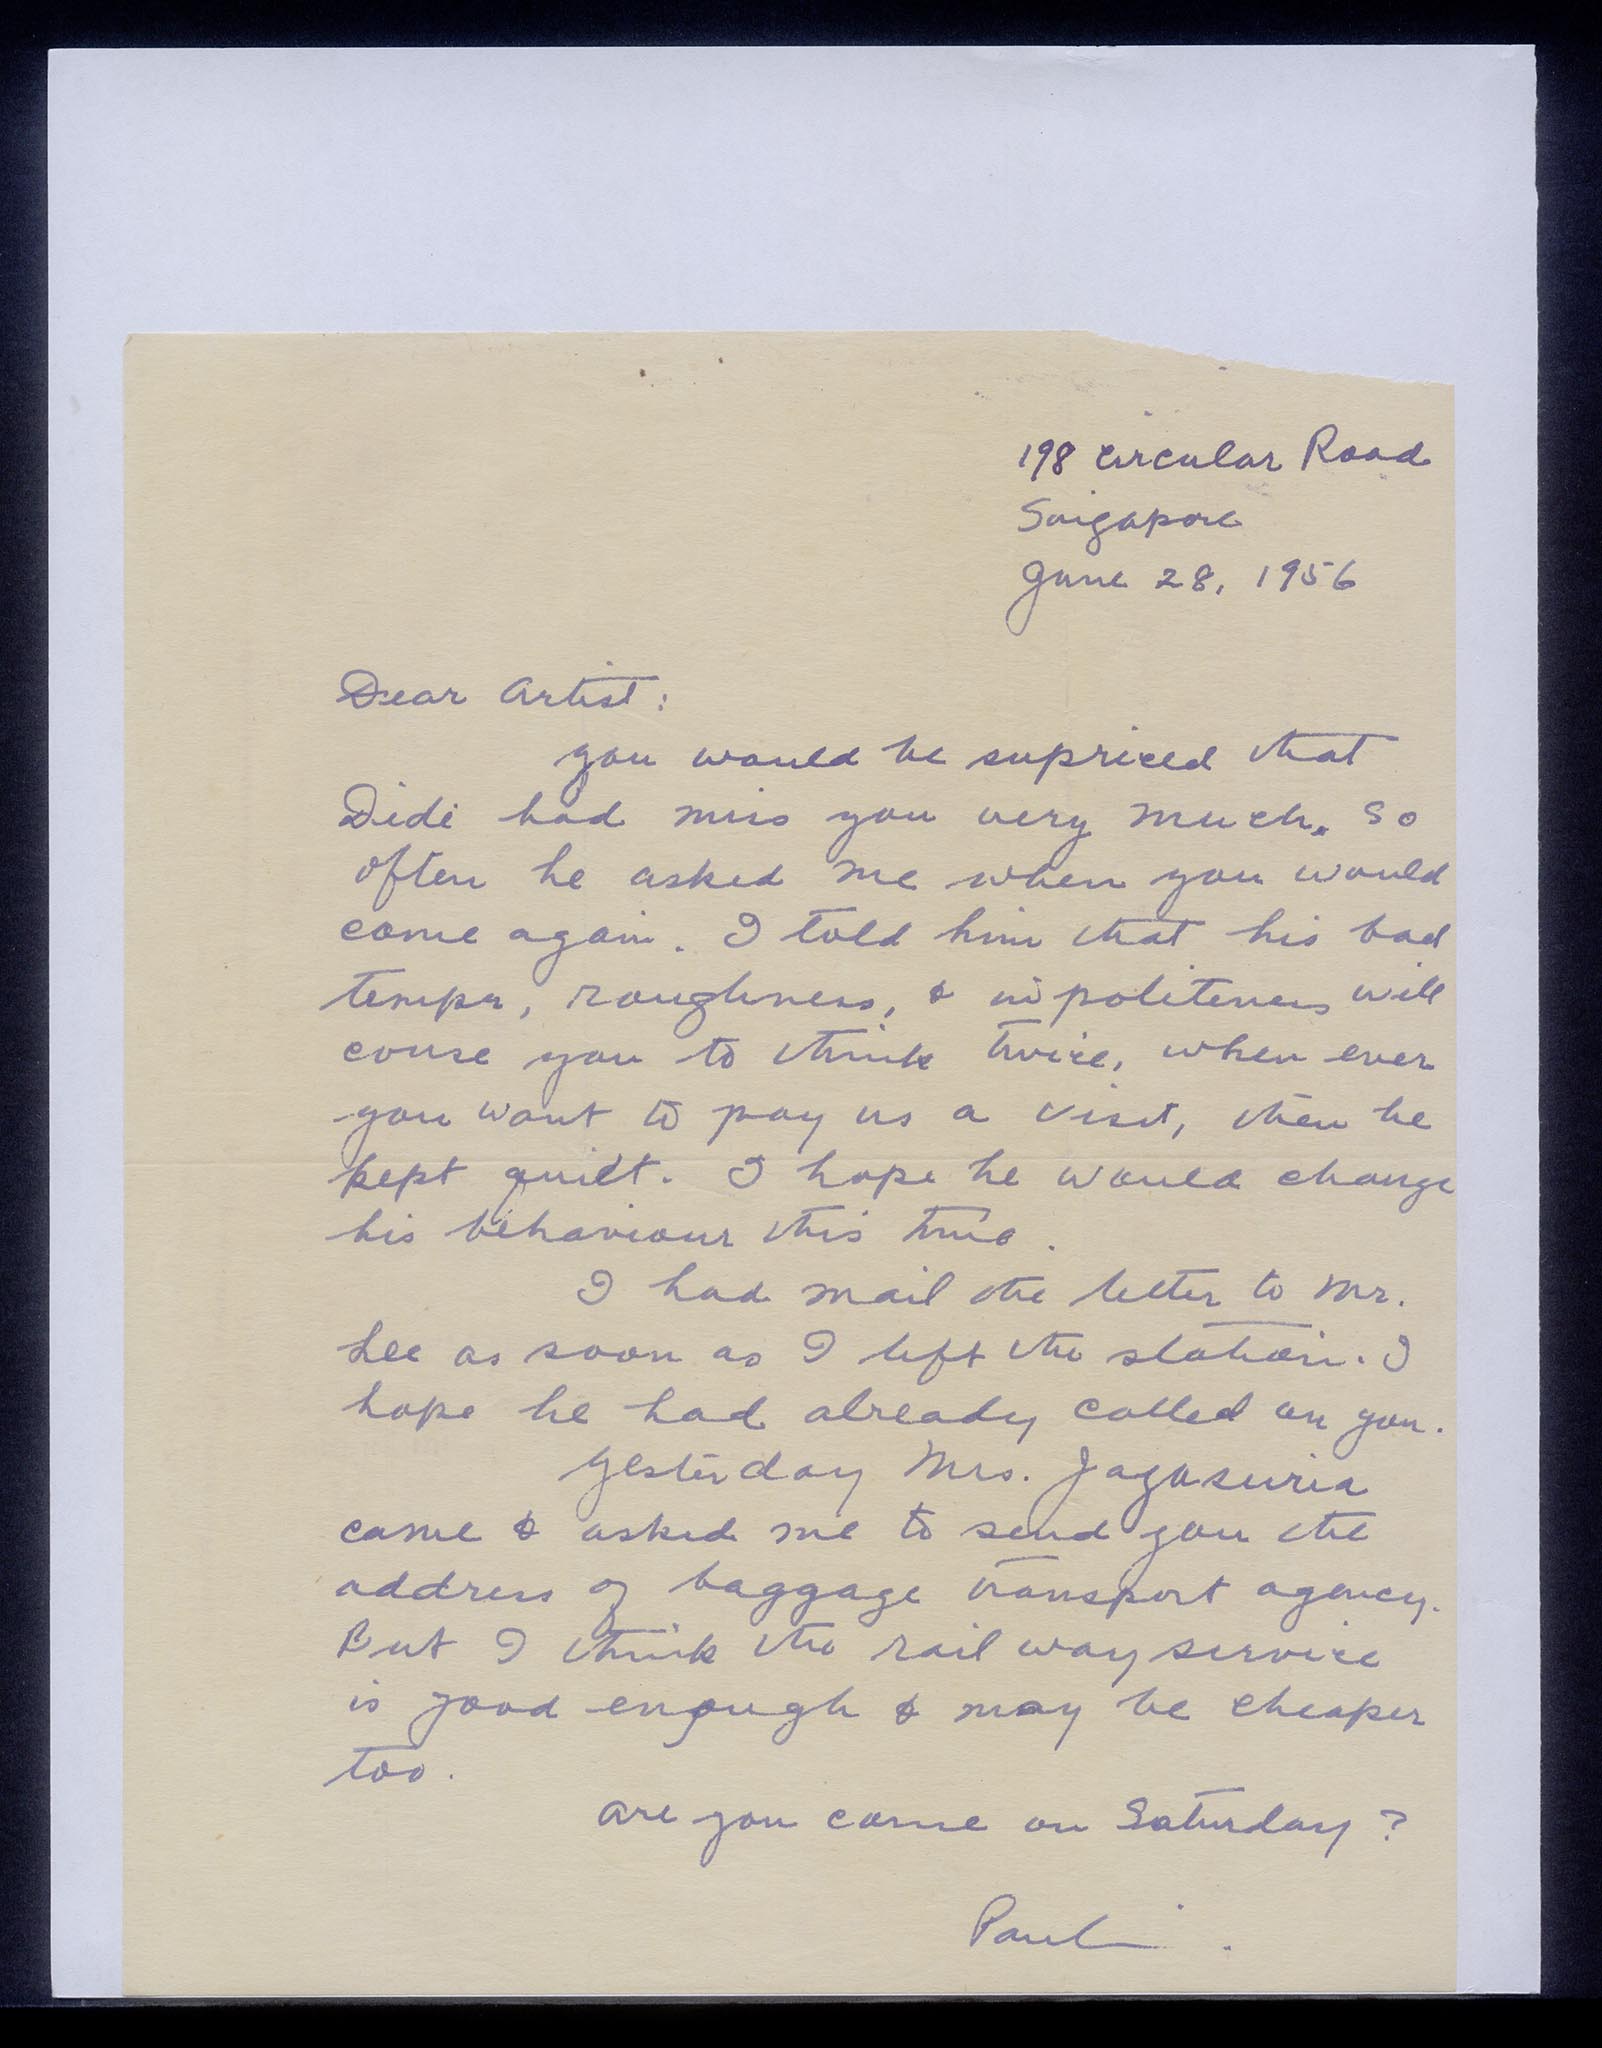 198 Circular Road
Singapore
June 28, 1956
Dear Artist:
you would be supriced that
Didi had miss you very much. So
often he asked me when you would
come again. I told him that his bad
temper, roughness, & inpoliteness will
couse you to think twice, when ever
you want to pay us a visit, then he
kept quiet. I hope he would change
his behaviour this time.
I had mail the letter to Mr.
Lee as soon as I left the station. I
hope he had already called on you.
Yesterday Mrs. Jagasuria
came & asked me to send you the
address of baggage transport agency.
But I think the railway service
is good enough & may be cheaper
too.
Are you come on Saturday?